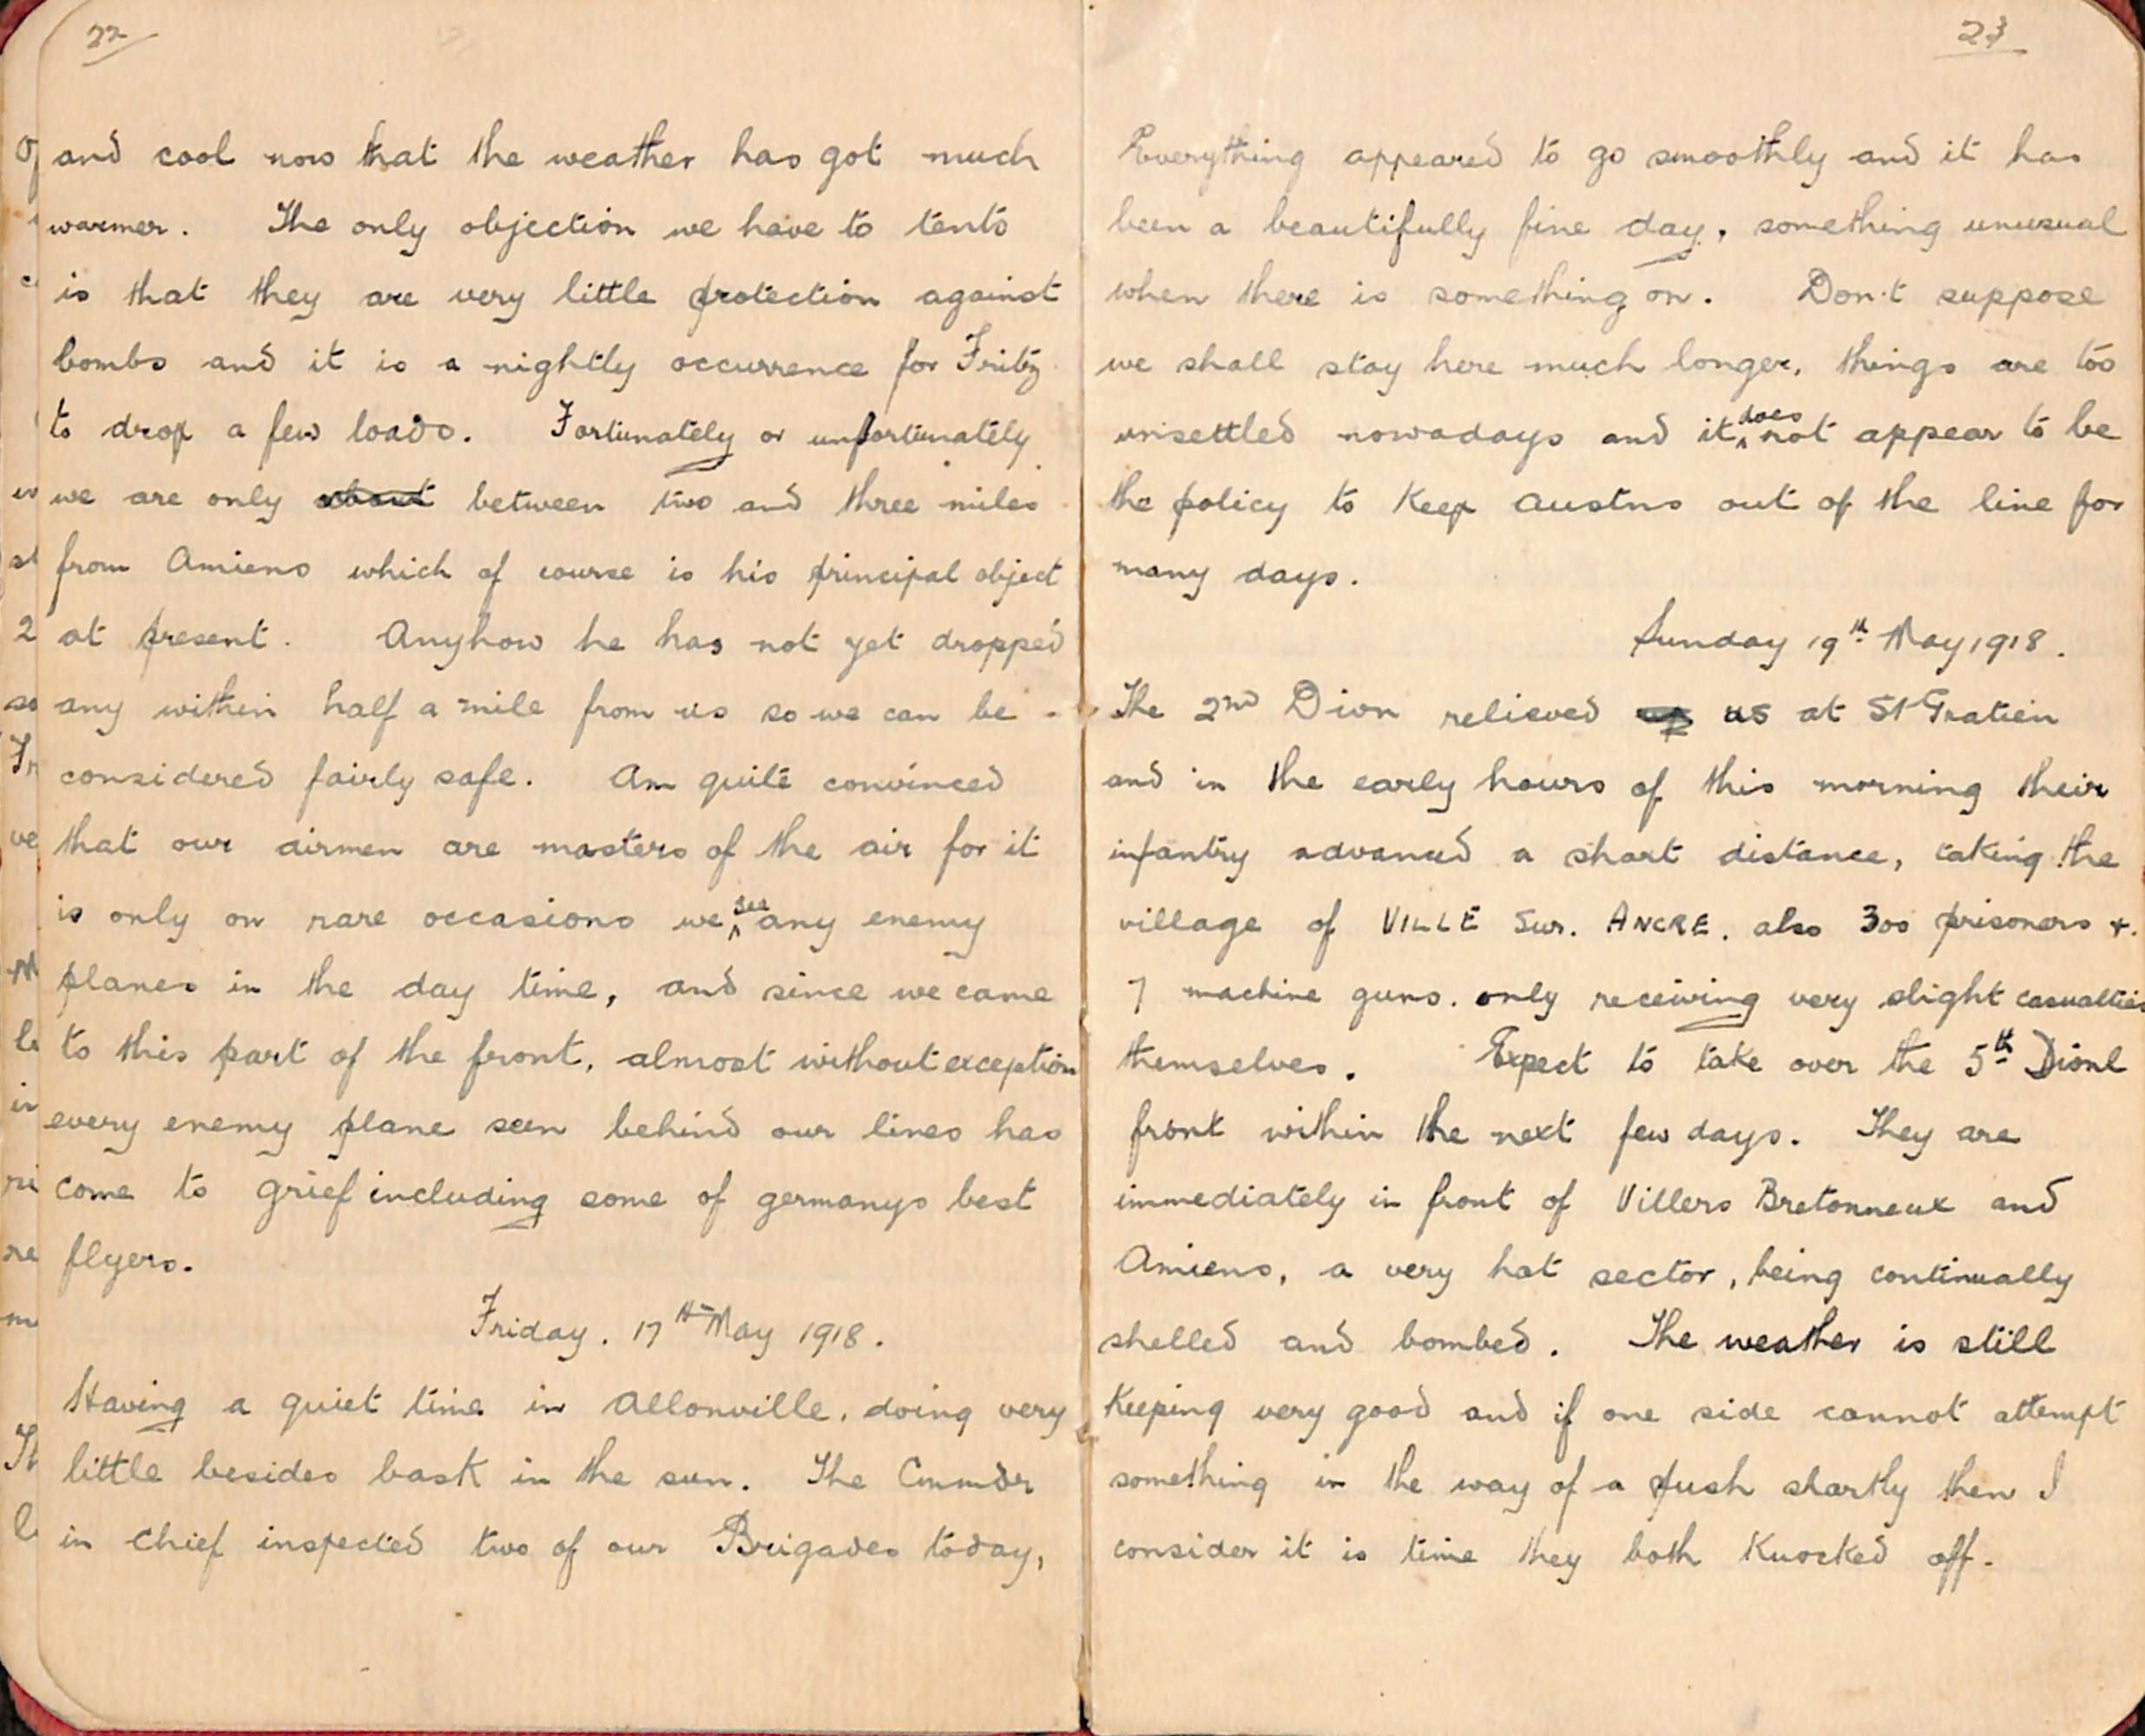 22
and cool now that the weather has got much
warmer. The only objection we have to tents
is that they are very little protection against
bombs and it is a nightly occurrence for Fritz
to drop a few loads. Fortunately or unfortunately
we are only about between two and three miles
from Amiens which of course is his principal object
at present. Anyhow he has not yet dropped
any within half a mile from us so we can be
considered fairly safe. Am quite convinced
that our airmen are masters of the air for it
is only on rare occasions we see any enemy
planes in the day time, and since we came
to this part of the front, almost without exception
every enemy plane seen behind our lines has
come to grief including some of germanys best
flyers.
Friday. 17th May 1918.
Having a quiet time in Allonville, doing very
little besides bask in the sun. The Commdr
in Chief inspected two of our Brigades today,
23
Everything appeared to go smoothly and it has
been a beautifully fine day, something unusual
when there is something on. Don't suppose
we shall stay here much longer, things are too
unsettled nowadays and it does not appear to be
the policy to keep Austns out of the line for
many days.
Sunday 19th May 1918.
The 2nd Divn relieved us at St Gratien
and in the early hours of this morning their
infantry advanced a short distance, taking the
village of VILLE Sur. ANCRE. also 300 prisoners +.
7 machine guns. only receiving very slight casualties
themselves. Expect to take over the 5th Dionl
front within the next few days. They are
immediately in front of Villers Bretonneux and
Amiens, a very hot sector, being continually
shelled and bombed. The weather is still
keeping very good and if one side cannot attempt
something in the way of a push shortly then I
consider it is time they both knocked off.